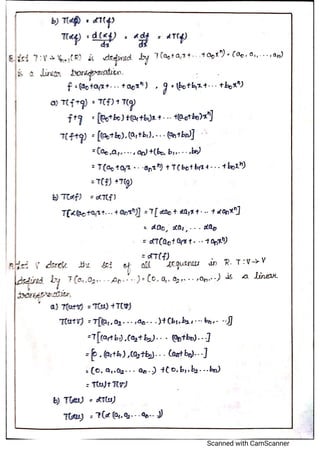 b) T(αf) = αT(f)
T(αf) = d(αf)/dx = α df/dx = αT(f)
8. let T : V → Vn+1(R) is defined by T(a0+a1x+...+anxⁿ) = (a0, a1, ..., an)
is a linear transformation.
f = (a0+a1x+...+anxⁿ), g = (b0+b1x+...+bnxⁿ)
a) T(f+g) = T(f)+T(g)
f+g = [(a0+b0)+(a1+b1)x+...+(an+bn)xⁿ]
T(f+g) = [(a0+b0), (a1+b1), ... (an+bn)]
= (a0, a1, ..., an)+(b0, b1, ..., bn)
= T(a0+a1x...anxⁿ) + T(b0+b1x+...+bnxⁿ)
= T(f) + T(g)
b) T(αf) = αT(f)
T[α(a0+a1x+...+anxⁿ)] = T[αa0 + αa1x+...+αanxⁿ]
= αa0, αa1, ... αan
= αT(a0+a1x+...+anxⁿ)
= αT(f)
9. let V denote the set of all sequences in R. T : V → V
defined by T(a1, a2, ... an, ...) = (0, a1, a2, ..., an, ...) is a linear
transformation.
a) T(u+v) = T(u) + T(v)
T(u+v) = T[(a1, a2, ... an, ...) + (b1, b2, ... bn, ...)]
= T[(a1+b1), (a2+b2), ... (an+bn)...]
= [0, (a1+b1), (a2+b2), ... (an+bn)...]
= (0, a1, a2, ... an..) + (0, b1, b2, ... bn)
= T(u) + T(v)
b) T(αu) = αT(u)
T(αu) = T(α(a1, a2, ... an...))
Scanned with CamScanner